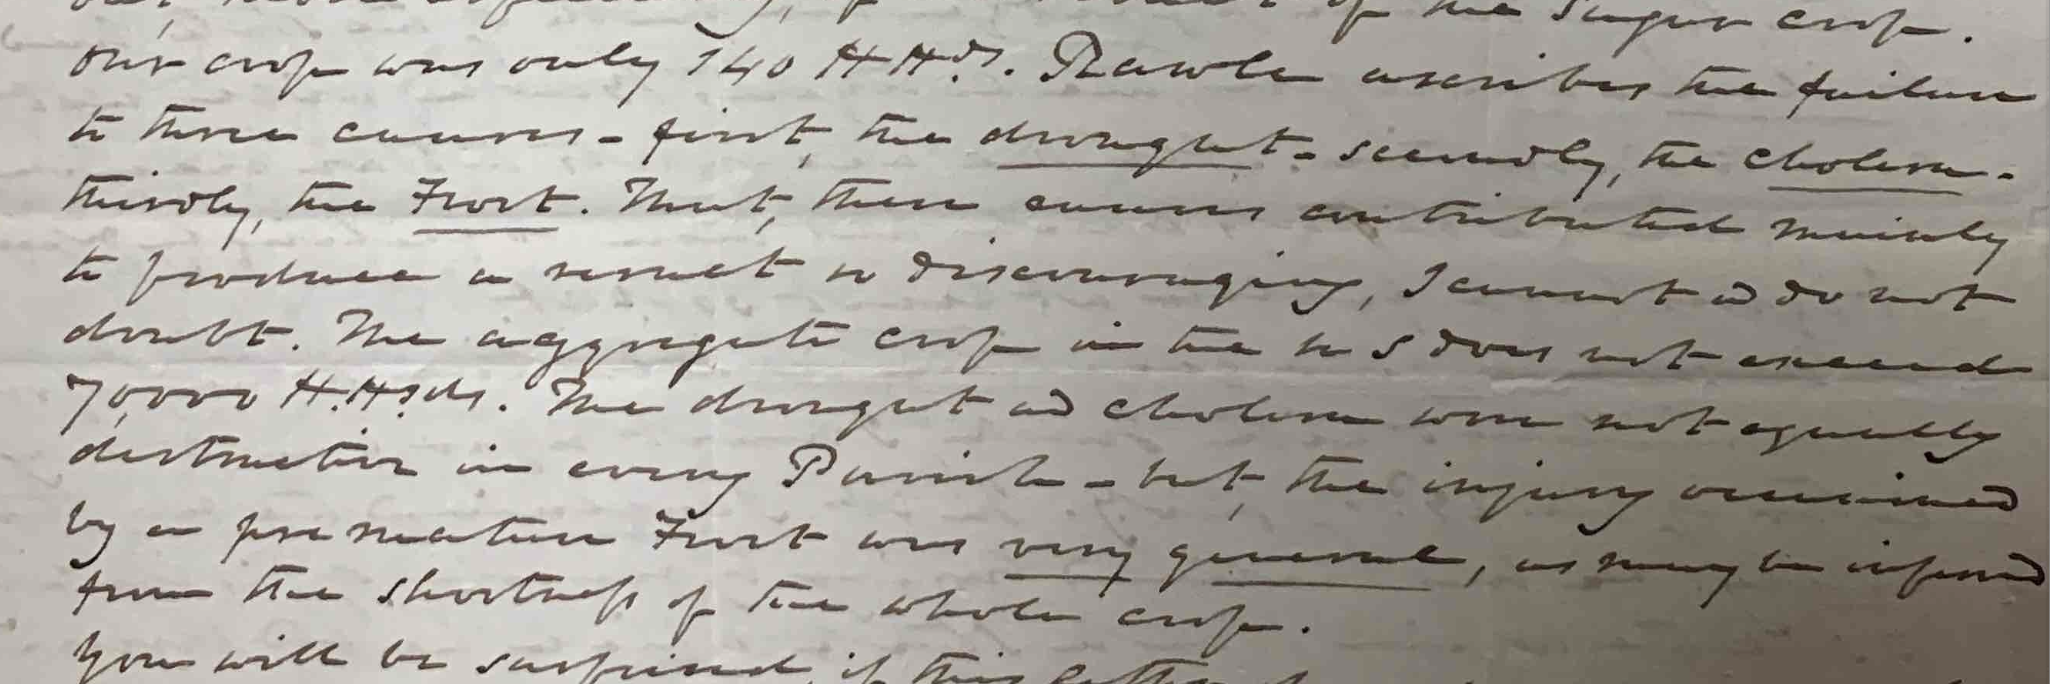 of the Sugar crop.
Our crop was only 140 HHds. Rawle ascribes the failure
to three causes - first, the drought - secondly, the cholera -
thirdly, the Frost. That, these causes contributed mainly
to produce a result so discouraging, I cannot & do not
doubt. The aggregate crop in the S does not exceed
70,000 H.Hds. The drought and cholera were not equally
destructive in every Parish - but, the injury occasioned
by a premature Frost was very general, as may be inferred
from the shortness of the whole crop.
You will be surprised, if this letter